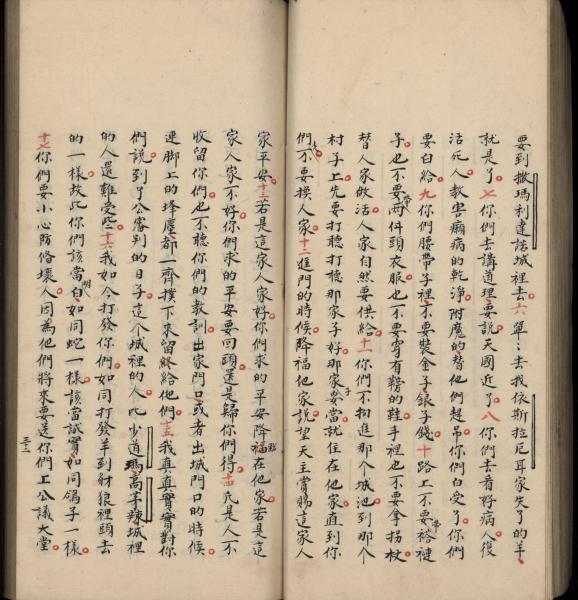 要到撒瑪利達話城裡去六單〻去找依斯拉尼耳家失了的羊
就是了七你們去講道理要說天國近了八你們去看好病人復
活死人教害癩病的乾淨附魔的替他們趕吊你們白受了你們
要白給九你們腰帶子裡不要裝金子銀子錢十路上不要帶褡褳
子也不要兩件頭衣服也不要穿有靿的鞋手裡也不要拿拐杖
替人家做活人家自然要供給十一你們不拘進那个城池到那个
村子上先要打聽打聽那家子好那家子當就住在他家直到你
們不要換人家十二進門的時候降福他家說望天主賞賜這家人
家平安十三若是這家人家好你們求的平安降福在他家若是這
家人家不好你們求的平安要回頭還是歸你們得十四凡是人不
收留你們也不聽你們的教訓出家門口或者出城門口的時候
連脚上的塵都一齊撲下來留給他們十五我真真實實對你
們說到了公審判的日子這个城裡的人比少道瑪高辣城裡
的人還難受些十六我如今打發你們如同打發羊到豺狼裡頭去
的一樣故此你們該當明白如同蛇一樣該當誠實如同鴿子一樣
十七你們要小心防俻壞人因為他們將來要送你們上公議大堂
三三